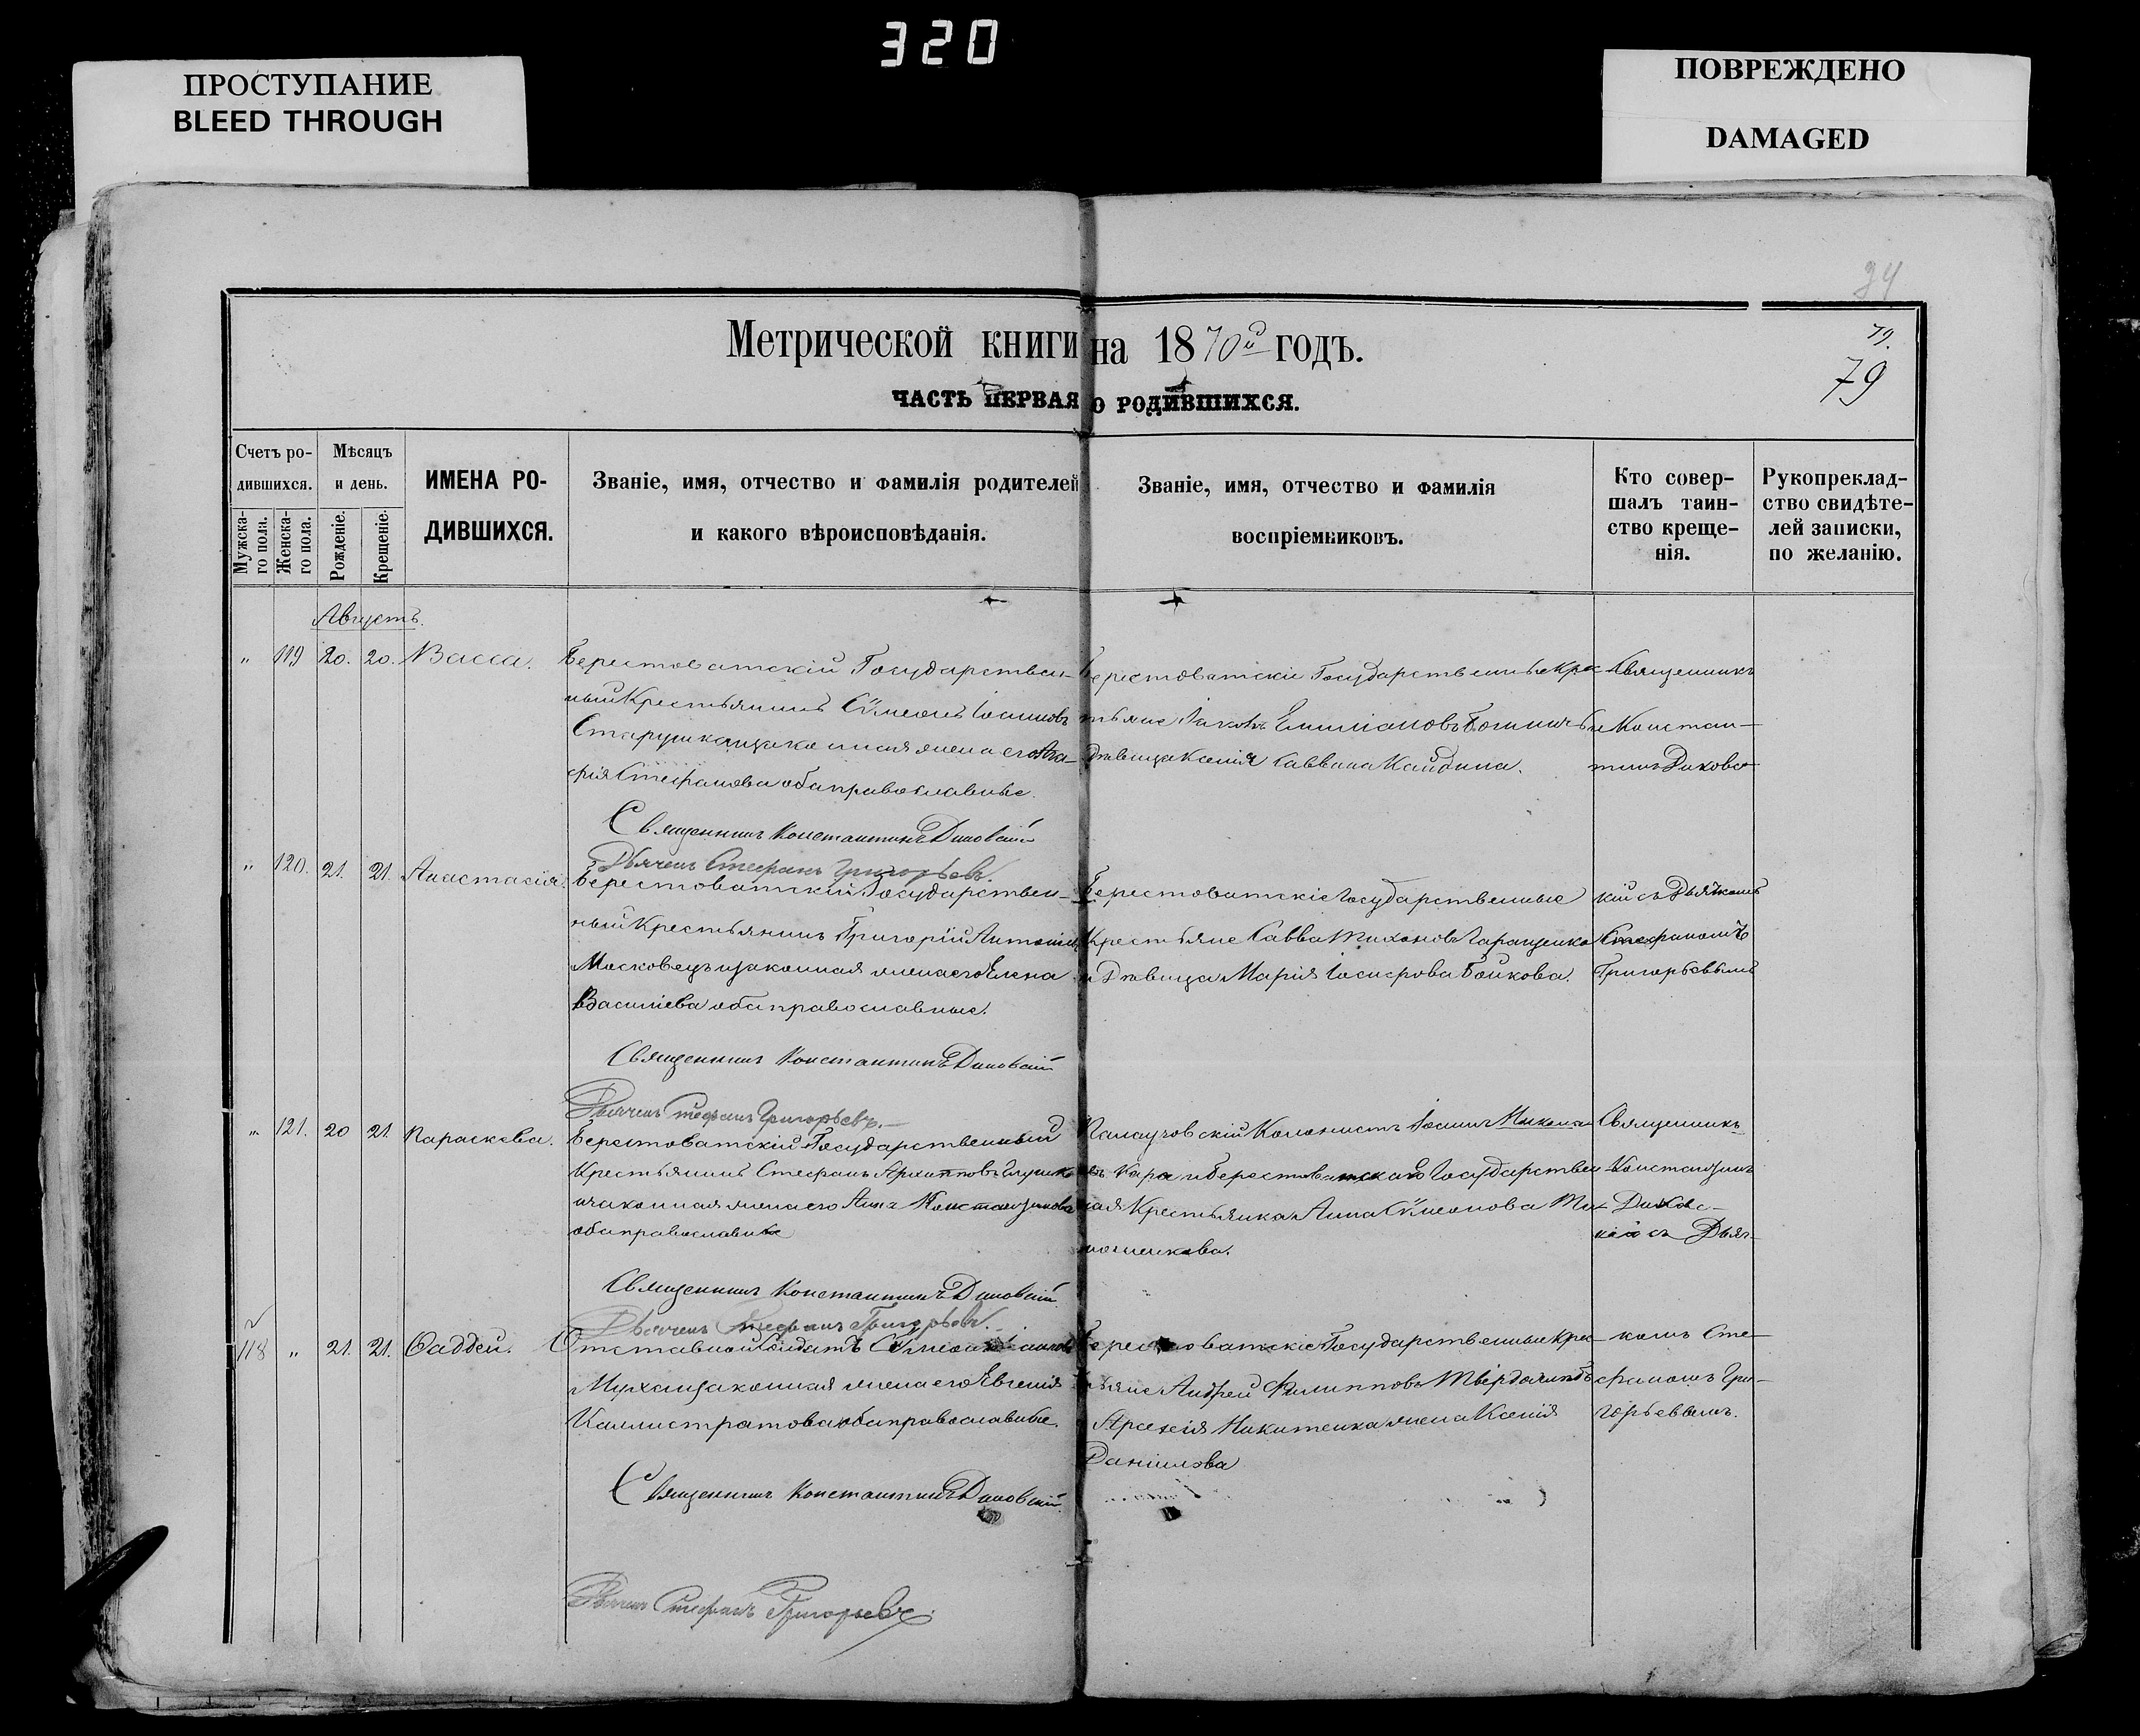 320
ПРОСТУПАНИЕ
BLEED THROUGH
ПОВРЕЖДЕНО
DAMAGED
Метрической книги на 1870й годъ.
79
ЧАСТЬ ПЕРВАЯ О РОДИВШИХСЯ.
Счетъ ро-
дившихся.
Мужска-
го пола.
Женска-
го пола.
Мѣсяцъ
и день.
Рожденіе.
Крещеніе.
ИМЕНА РО-
ДИВШИХСЯ.
Званіе, имя, отчество и фамилія родителей
и какого вѣроисповѣданія.
Званіе, имя, отчество и фамилія
воспріемниковъ.
Кто совер-
шалъ таин-
ство креще-
нія.
Рукопреклад-
ство свидѣте-
лей записки,
по желанію.
Августъ.
" 119 20. 20. Васса.
Берестоватскій Государствен-
ный Крестьянинъ Сѵмеонъ Іоанновъ
законная жена его Ма-
рія Стефанова оба православные.
Священникъ Константинъ Диковскій
Дьячекъ Стефанъ Григорьевъ.
Берестоватскіе Государственные Крес-
тьяне Іаковъ Емиліановъ
Дѣвица Ксенія Саввина
Священникъ
Констан-
тинъ Диковс-
" 120. 21. 21. Анастасія.
Берестоватскій Государствен-
ный Крестьянинъ Григорій
Московецъ и законная жена его Елена
Василіева оба православные.
Священникъ Константинъ Диковскій
Дьячекъ Стефанъ Григорьевъ.
Берестоватскіе Государственные
Крестьяне Савва Тихоновъ Гаращенко
и Дѣвица Марія Іосифова Бойкова.
кій съ Дьячкомъ
Стефаномъ
Григорьевымъ
" 121. 20 21. Параскева.
Берестоватскій Государственный
Крестьянинъ Стефанъ Архиповъ
и законная жена его Анна Константинова
оба православные
Священникъ Константинъ Диковскій
Дьячекъ Стефанъ Григорьевъ.
Колонистъ Іоаннъ Никола-
евъ Кара и Берестоватская Государствен-
ная Крестьянка Анна Сѵмеонова Ти-
мошенкова.
Священникъ
Константинъ
Диковс-
кій съ Дьяч-
118 " 21. 21. Фаддей.
Отставной Солдатъ Сѵмеонъ
Муха и законная жена его Евгенія
Каллистратова оба православные.
Священникъ Константинъ Диковскій.
Дьячекъ Стефанъ Григорьевъ.
Берестоватскіе Государственные Крес-
тьяне Андрей Филипповъ
Арсенія Никитенка жена Ксенія
Даніилова
комъ Сте-
фаномъ Гри-
горьевымъ.